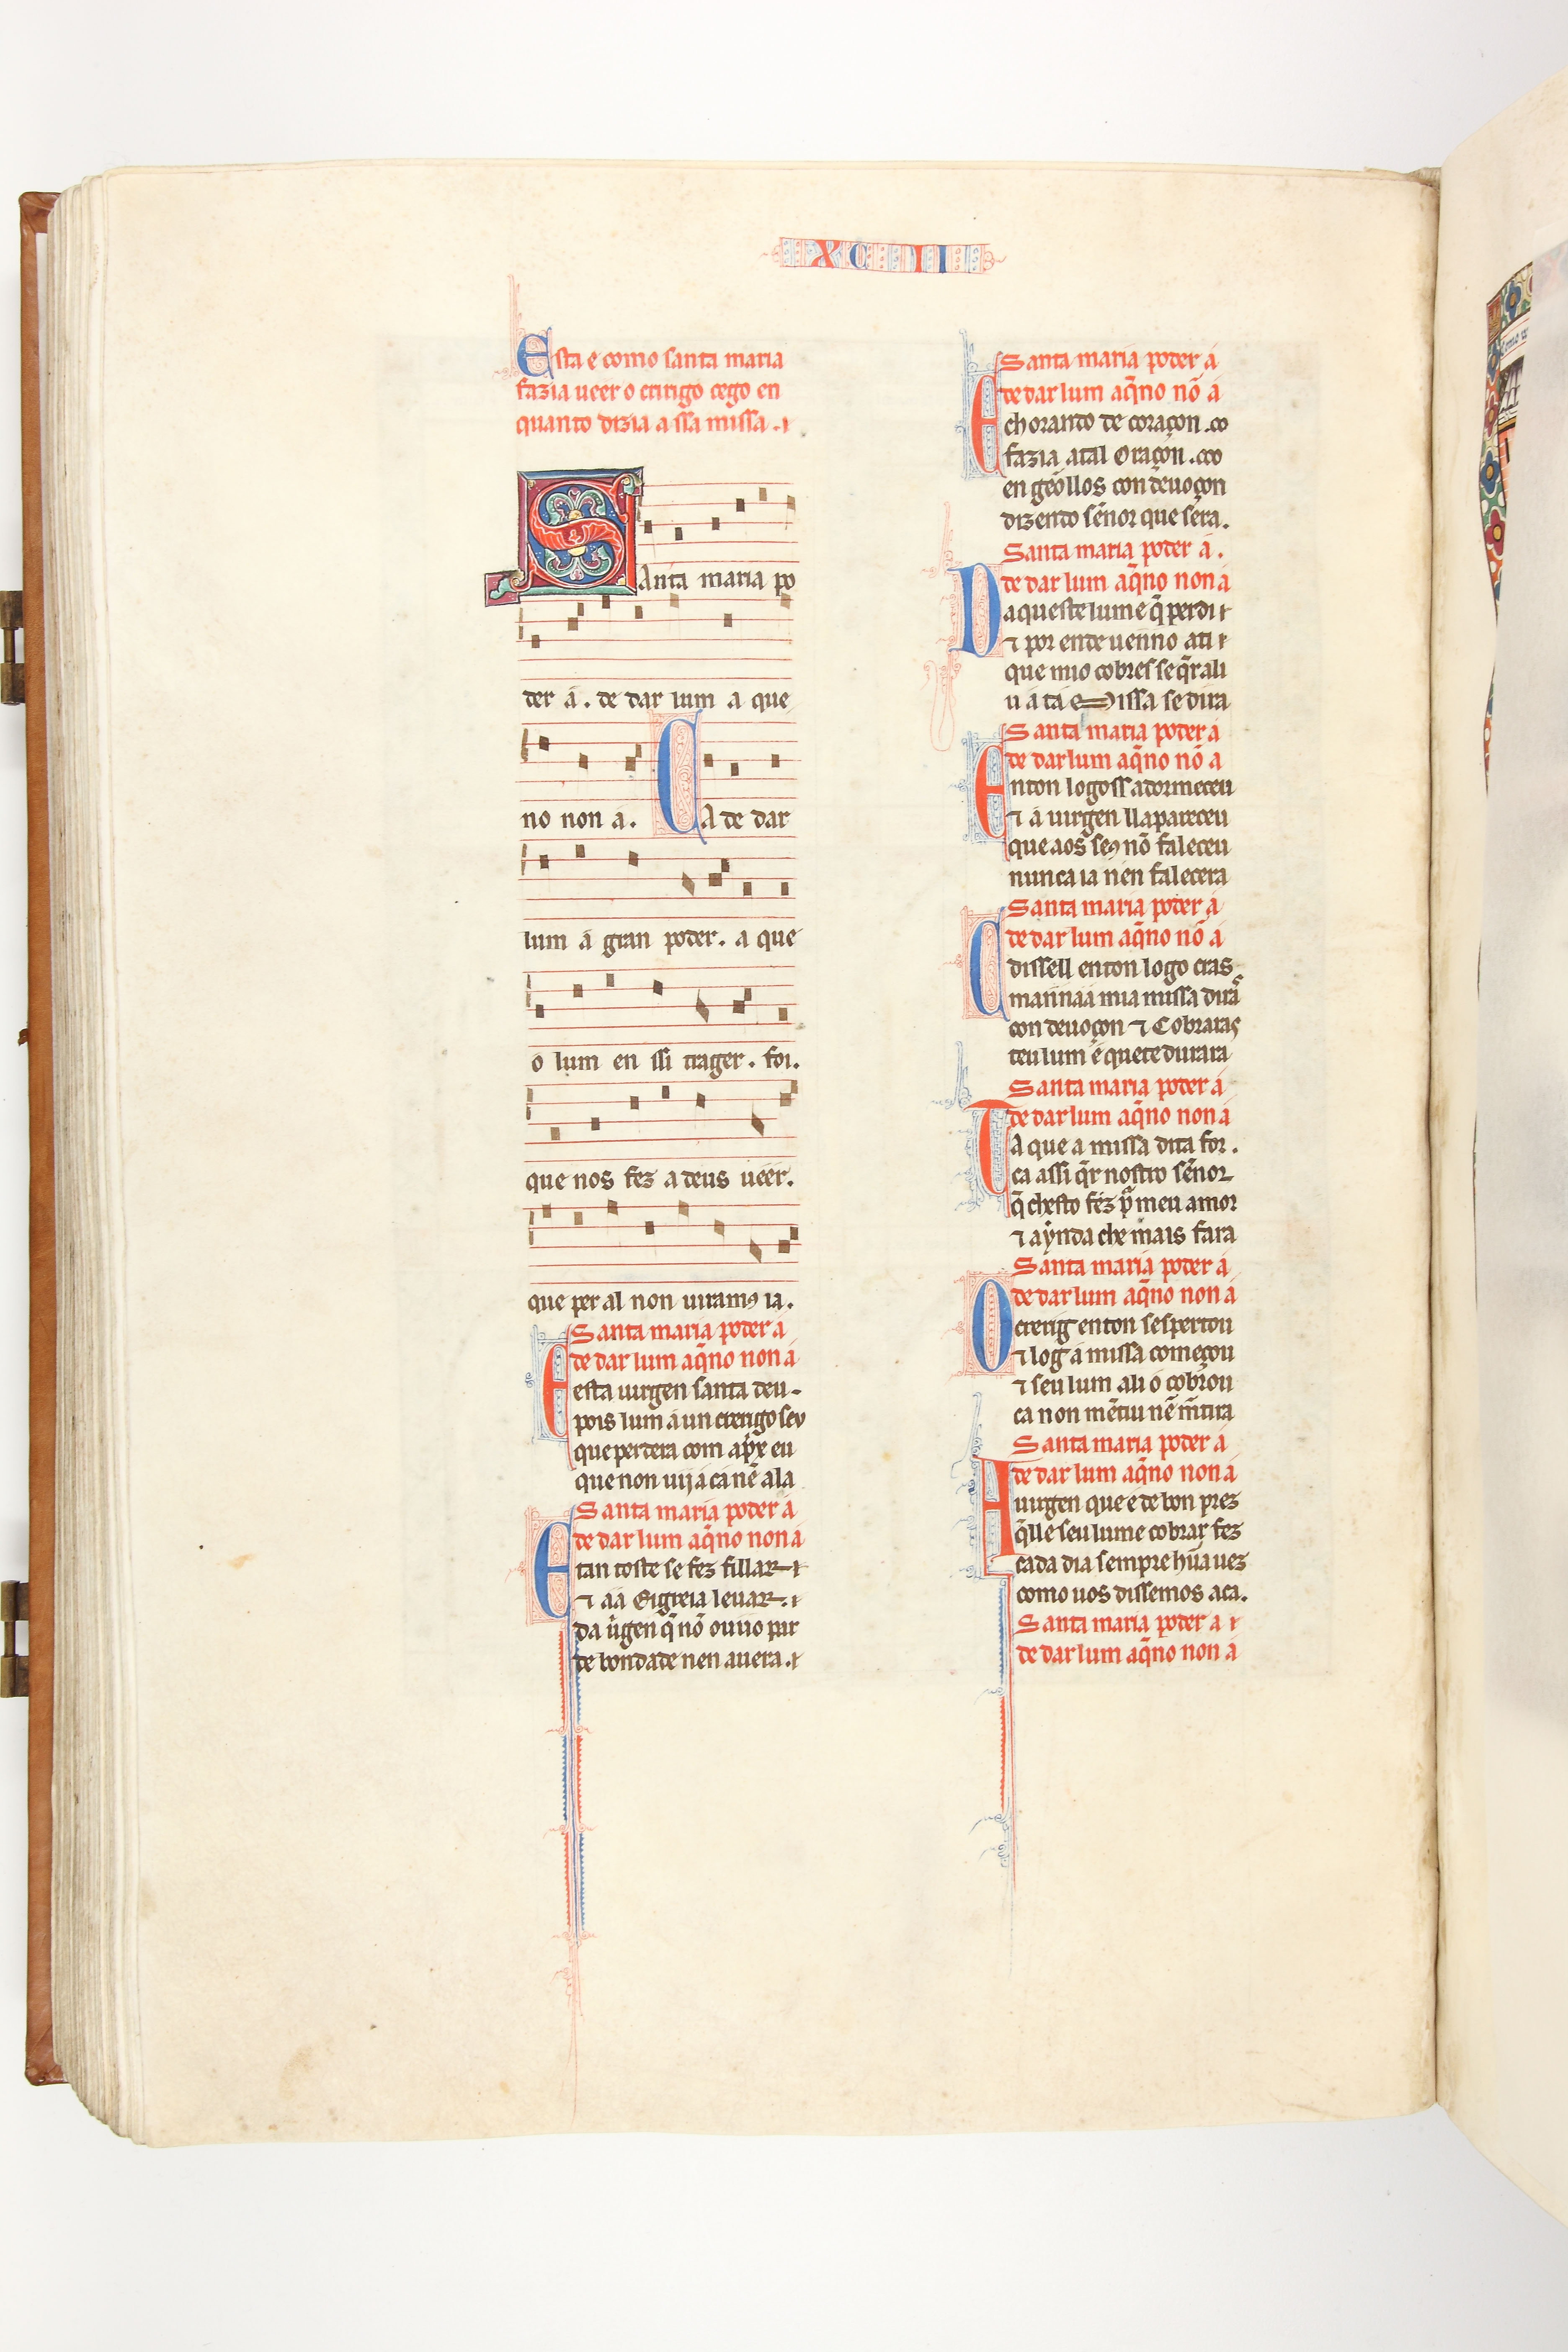 XC II
Esta e como santa maria
fazia ueer o crerigo cego en
quanto dizia a ssa missa.
Santa maria po
der á. de dar lum a que
no non á. Ca de dar
lum á gran poder. a que
o lum en ssi trager. foi.
que nos fez a deus ueer.
que per al non uiramꝰ ia.
Santa maria poder á
de dar lum aq̄no non á
E esta uirgen santa deu.
pois lum á un crerigo seu
que perdera com apͥx eu
que non uija ca nē ala
Santa maria poder á
de dar lum aq̄no non á
E tan toste se fez fillar
⁊ aa Eigreia leuar.
da uͥgen q̄ nō ouuo par
de bondade nen auera.
Santa maria poder á
de dar lum aq̄no nō á
E chorando de coraçon. co
fazia atal Oraçon. coo
en geollos con deuoçon
dizendo sēnor que sera.
Santa maria poder á.
de dar lum aq̄no non á
Daqueste lume q̄ perdi
⁊ por ende uenno a ti
que mio cobres se q̄r ali
u á ta Missa se dira
Santa maria poder á
de dar lum aq̄no nō á
Enton logo ss adormeceu
⁊ á uirgen ll apareceu
que aos seꝰ nō faleceu
nunca ia nen falecera
Santa maria poder á
de dar lum aq̄no nō á
E dissell enton logo cras
mannaa mia missa dirá
con deuoçon ⁊ Cobraras
teu lum e que te durara
Santa maria poder á
de dar lum aq̄no non á
Ta que a missa dita for.
ca assi q̄r nostro sēnor
q̄ ch esto fez pͥ meu amor
⁊ aẏnda che mais fara
Santa maria poder á
de dar lum aq̄no non á
O crerig enton s espertou
⁊ log a missa começou
⁊ seu lum ali o cobrou
ca non mētiu nē m̄tira
Santa maria poder á
de dar lum aq̄no non á
A uirgen que é de bon prez
q̄ lle seu lume cobrar fez
cada dia sempre hũa uez
como uos dissemos aca.
Santa maria poder á
de dar lum aq̄no non á